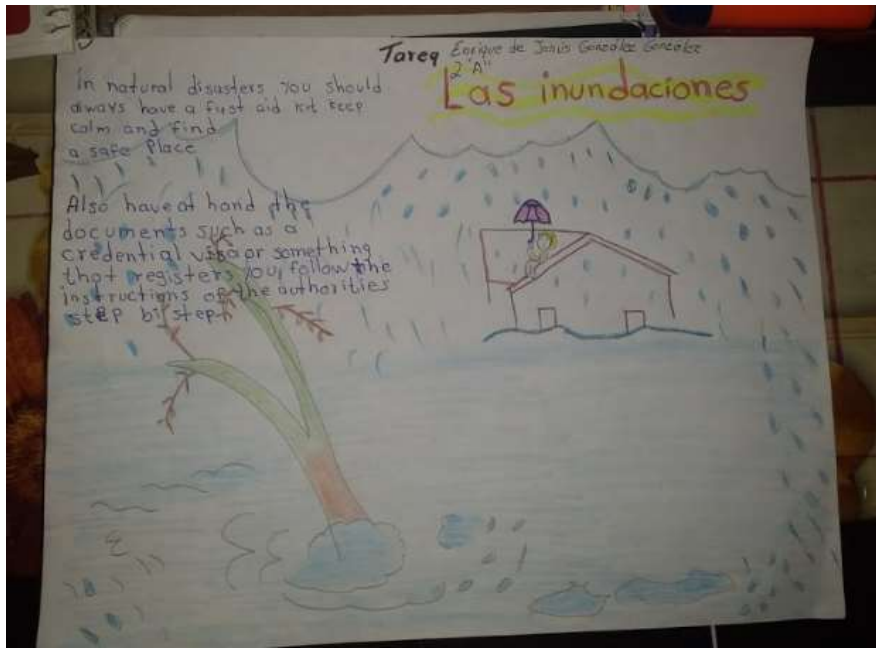 Tareq Enrique de Jesús González González
2 "A"
Las inundaciones
in natural disasters you should
always have a fust aid kit keep
calm and find
a safe place
Also have at hand the
documents such as a
credential visa or something
that registers you, follow the
instructions of the authorities
step bi step